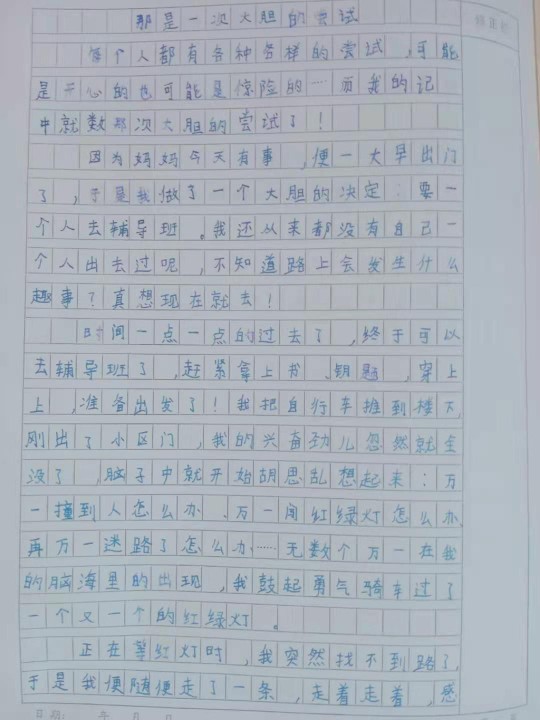 那是一次大胆的尝试
每个人都有各种各样的尝试，可能
是开心的也可能是惊险的……而我的记
中就数那次大胆的尝试了！
因为妈妈今天有事，便一大早出门
了，于是我做了一个大胆的决定：要一
个人去辅导班。我还从来都没有自己一
个人出去过呢，不知道路上会发生什么
趣事？真想现在就去！
时间一点一点的过去了，终于可以
去辅导班了，赶紧拿上书、钥题，穿上
上，准备出发了！我把自行车推到楼下，
刚出了小区门，我的兴奋劲儿忽然就全
没了，脑子中就开始胡思乱想起来：万
一撞到人怎么办、万一闯红绿灯怎么办，
再万一迷路了怎么办……无数个万一在我
的脑海里的出现，我鼓起勇气骑车过了
一个又一个的红绿灯。
正在等红灯时，我突然找不到路了，
于是我便随便走了一条，走着走着，感
日期： 年 月 日